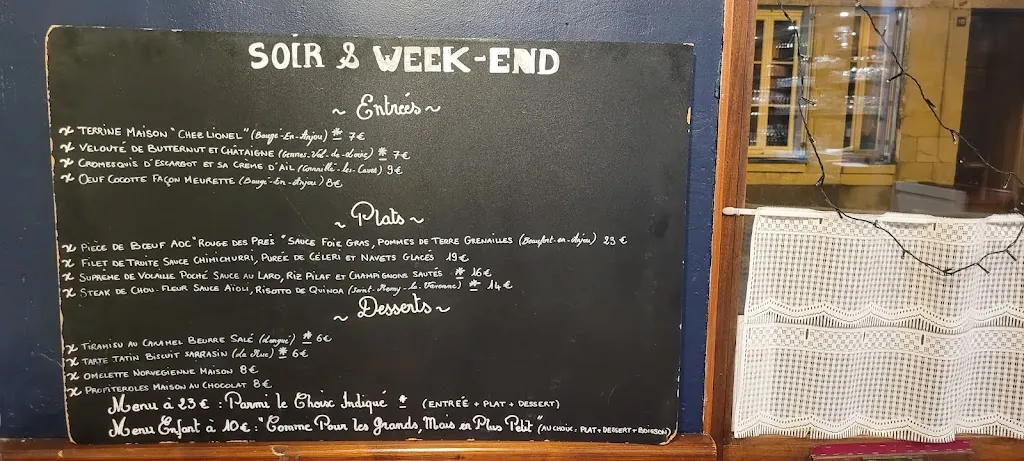 SOIR & WEEK-END
~ Entrées ~
TERRINE MAISON "CHEZ LIONEL" (Baugé-En-Anjou) * 7€
VELOUTÉ DE BUTTERNUT ET CHÂTAIGNE (Gennes-Val-de-Loire) * 7€
CROMESQUIS D'ESCARGOT ET SA CRÈME D'AIL (Cornillé-les-Caves) 9€
OEUF COCOTTE FAÇON MEURETTE (Baugé-En-Anjou) 8€
~ Plats ~
PIÈCE DE BOEUF AOC "ROUGE DES PRÉS" SAUCE FOIE GRAS, POMMES DE TERRE GRENAILLES (Beaufort-en-Anjou) 23 €
FILET DE TRUITE SAUCE CHIMICHURRI, PURÉE DE CÉLERI ET NAVETS GLACÉS 19€
SUPRÊME DE VOLAILLE POCHÉ SAUCE AU LARD, RIZ PILAF ET CHAMPIGNONS SAUTÉS * 16€
STEAK DE CHOU-FLEUR SAUCE AÏOLI, RISOTTO DE QUINOA (Saint-Remy-la-Varenne) * 14€
~ Desserts ~
TIRAMISU AU CARAMEL BEURRE SALÉ (Longué) * 6€
TARTE TATIN BISCUIT SARRASIN * 6€
OMELETTE NORVEGIENNE MAISON 8€
PROFITEROLES MAISON AU CHOCOLAT 8€
Menu à 23€ : Parmi le Choix Indiqué * (ENTRÉE + PLAT + DESSERT)
Menu Enfant à 10€ : "Comme Pour les Grands, Mais en Plus Petit" (AU CHOIX : PLAT + DESSERT + BOISSON)